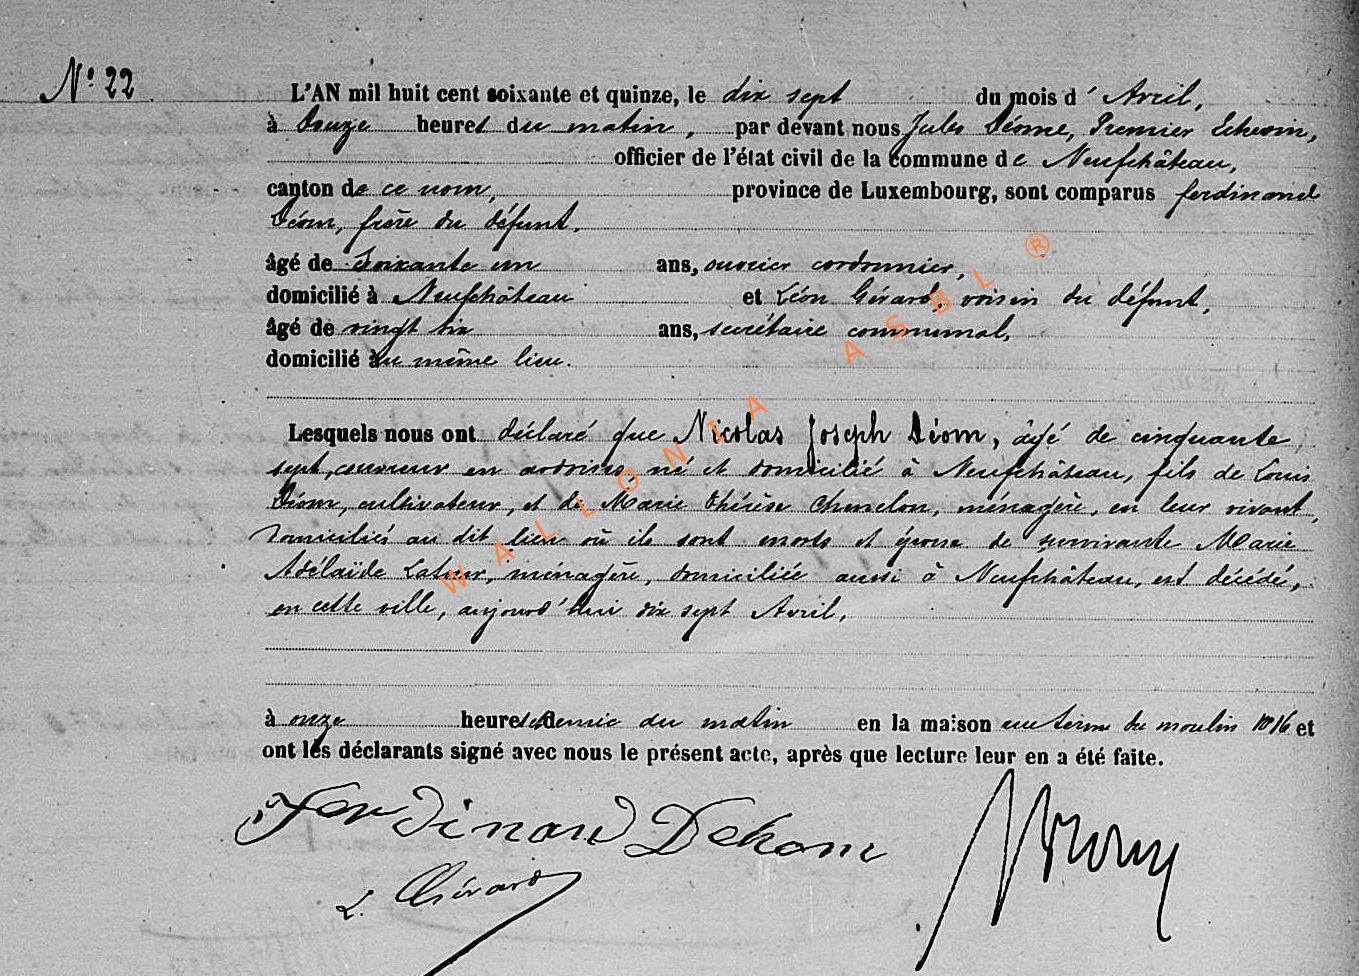 N° 22
L'AN mil huit cent soixante et quinze, le dix sept du mois d' Avril,
à onze heures du matin, par devant nous Jules Déome, Premier Echevin,
officier de l'état civil de la commune de Neufchâteau,
canton de ce nom, province de Luxembourg, sont comparus ferdinand
Déom, frère du défunt,
âgé de Soixante un ans, ouvrier cordonnier,
domicilié à Neufchâteau et Léon Gérard, voisin du défunt,
âgé de vingt six ans, secrétaire communal,
domicilié au même lieu.
Lesquels nous ont déclaré que Nicolas Joseph Déom, âgé de cinquante
sept, couvreur en ardoises, né et domicilié à Neufchâteau, fils de Louis
Déom, cultivateur, et de Marie Thérèse, ménagère, en leur vivant,
domiciliés au dit lieu où ils sont morts et époux de survivante Marie
Adélaïde Latour, ménagère, domiciliée aussi à Neufchâteau, est décédé,
en cette ville, aujourd'hui dix sept Avril,
à onze heures demie du matin en la maison du moulin et
ont les déclarants signé avec nous le présent acte, après que lecture leur en a été faite.
Ferdinand Dehom
L. Gérard
WALLONIA ASBL ®